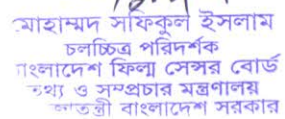 মোহাম্মদ সফিকুল ইসলাম
চলচ্চিত্র পরিদর্শক
বাংলাদেশ ফিল্ম সেন্সর বোর্ড
তথ্য ও সম্প্রচার মন্ত্রণালয়
বাংলাদেশ সরকার